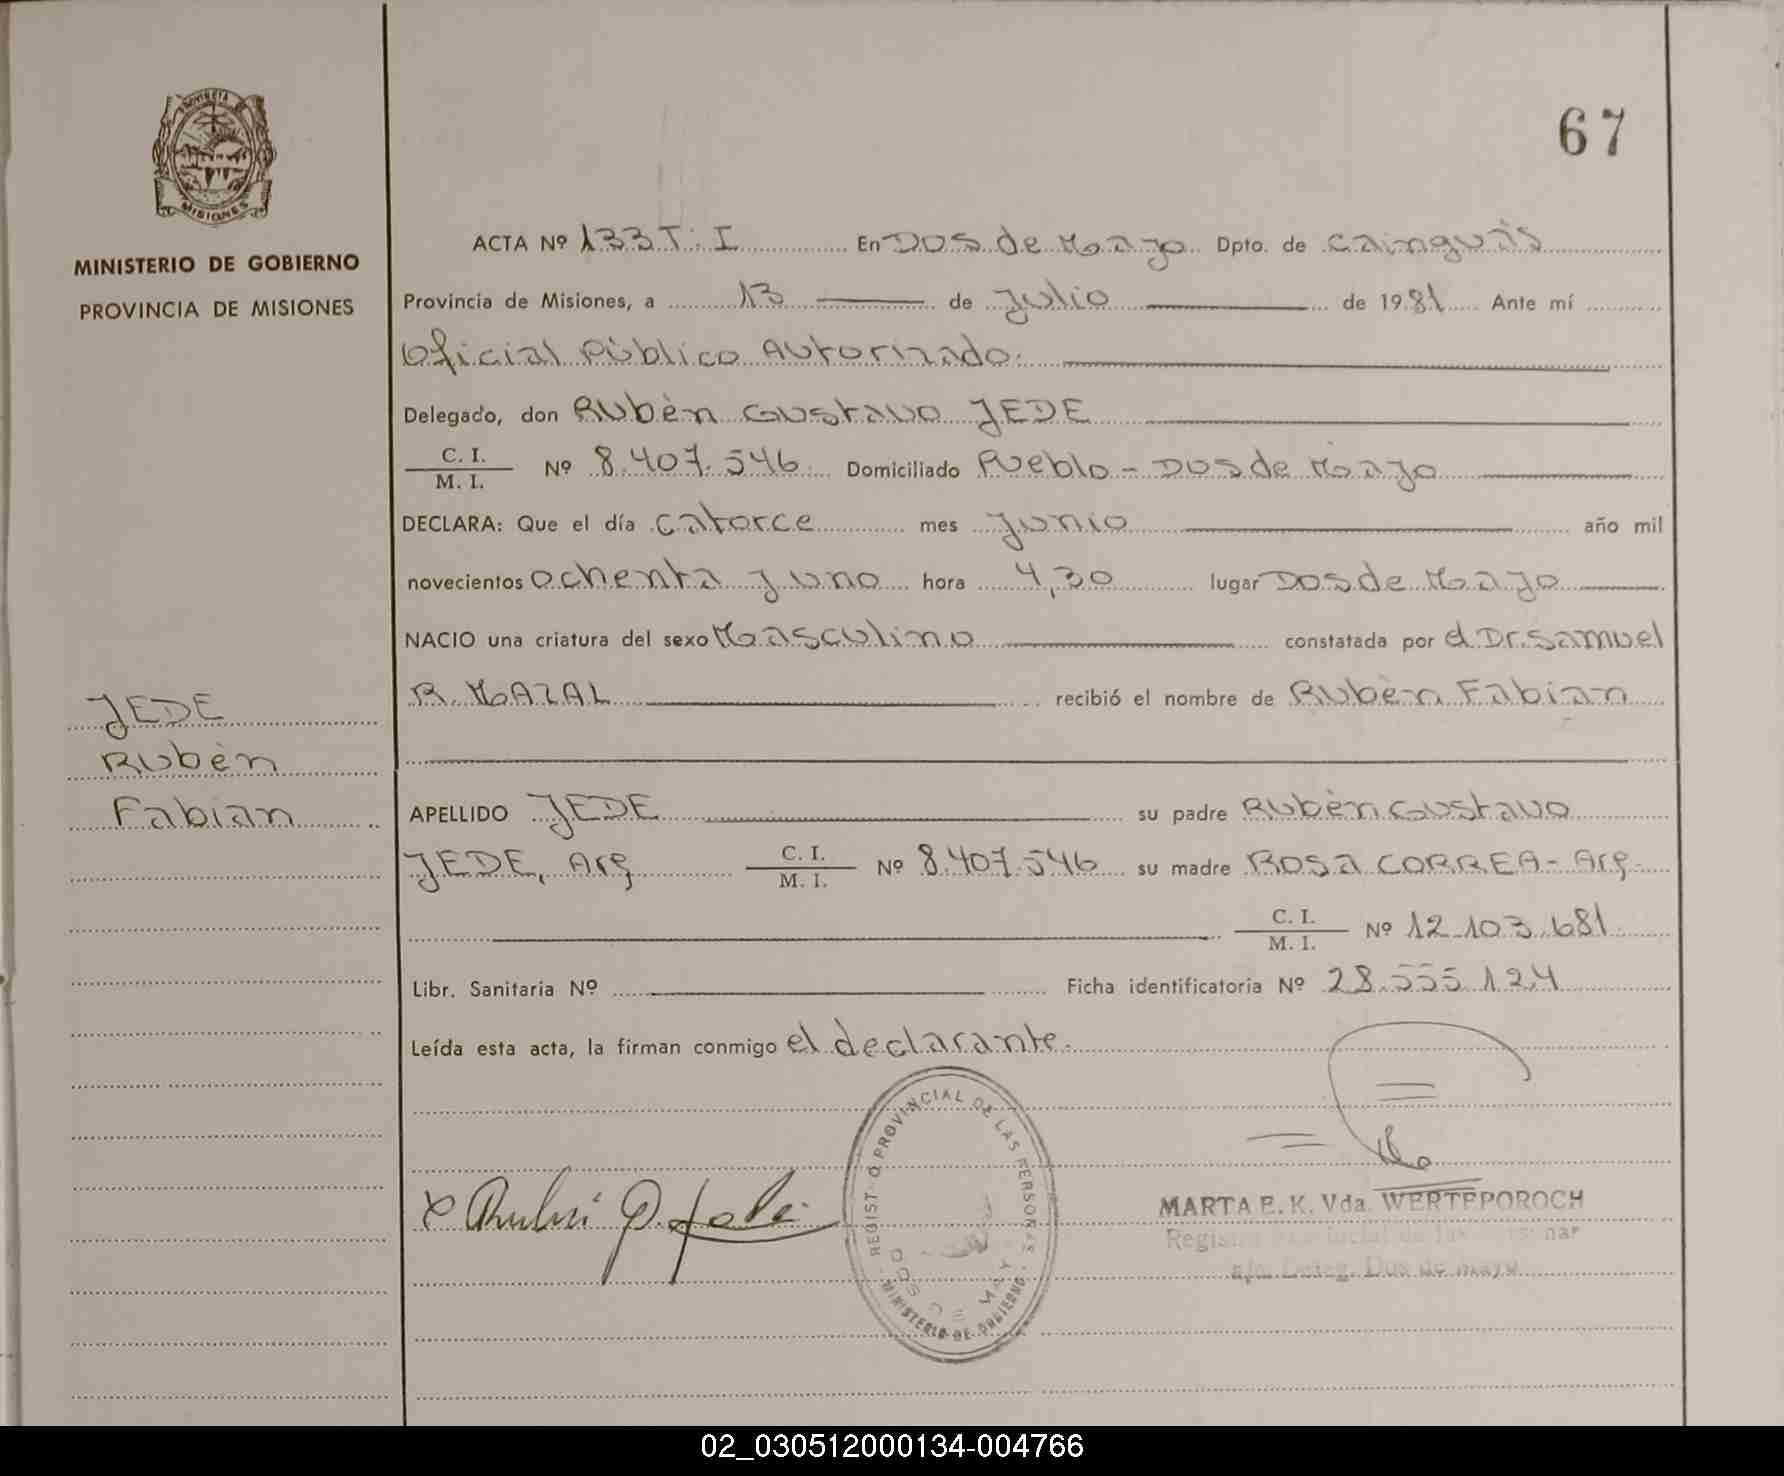 PROVINCIA DE
MISIONES
MINISTERIO DE GOBIERNO
PROVINCIA DE MISIONES
JEDE
Rubèn
Fabian
67
ACTA Nº 133 T: I En DOS de Mayo Dpto. de Cainguàs
Provincia de Misiones, a 13 de Julio de 1981 Ante mí
Oficial Pùblico Autorizado.
Delegado, don Rubèn Gustavo JEDE
C. I.
M. I. Nº 8.407.546 Domiciliado Pueblo - DOS de Mayo
DECLARA: Que el día catorce mes Junio año mil
novecientos ochenta y uno hora 4,30 lugar DOS de Mayo
NACIO una criatura del sexo Masculino constatada por el Dr. Samuel
R. MAZAL recibió el nombre de Rubèn Fabian
APELLIDO JEDE su padre Rubèn Gustavo
JEDE, Arg C. I. M. I. Nº 8.407.546 su madre ROSA CORREA - Arg.
C. I.
M. I. Nº 12.103.681
Libr. Sanitaria Nº Ficha identificatoria Nº 28.555.124
Leída esta acta, la firman conmigo el declarante.
REGISTRO PROVINCIAL DE LAS PERSONAS
DOS DE MAYO
MINISTERIO DE GOBIERNO
MARTA E. K. Vda. WERTEPOROCH
a/c. Deleg. Dos de Mayo
02_030512000134-004766